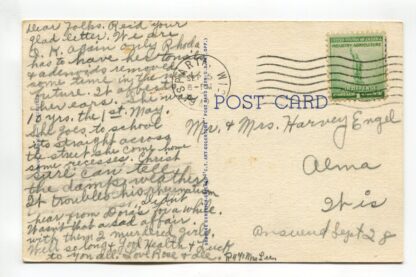 Dear Folks. Recd your
glad letter. We are
O.K. again only Rhoda
has to have her tonsils
& adenoids removed
some time in the near
future. It affects
her ears. She was
10 yrs. the 1st. May.
She goes to school
its straight across
the street, she come home
some recesses. Christ
sure can tell
the damp weather.
It troubles his rheumatism
hear from Doris for a while.
Wasn't that a sad affair
with them 2 murdered girls.
Well so long & Good Health & Luck
to you all. Love Rose & Lee.
SPARTA, WIS.
POST CARD
INDUSTRY-AGRICULTURE
FOR DEFENSE
Mr. & Mrs. Harvey Engel
Alma
Wis
Answered Sept 28